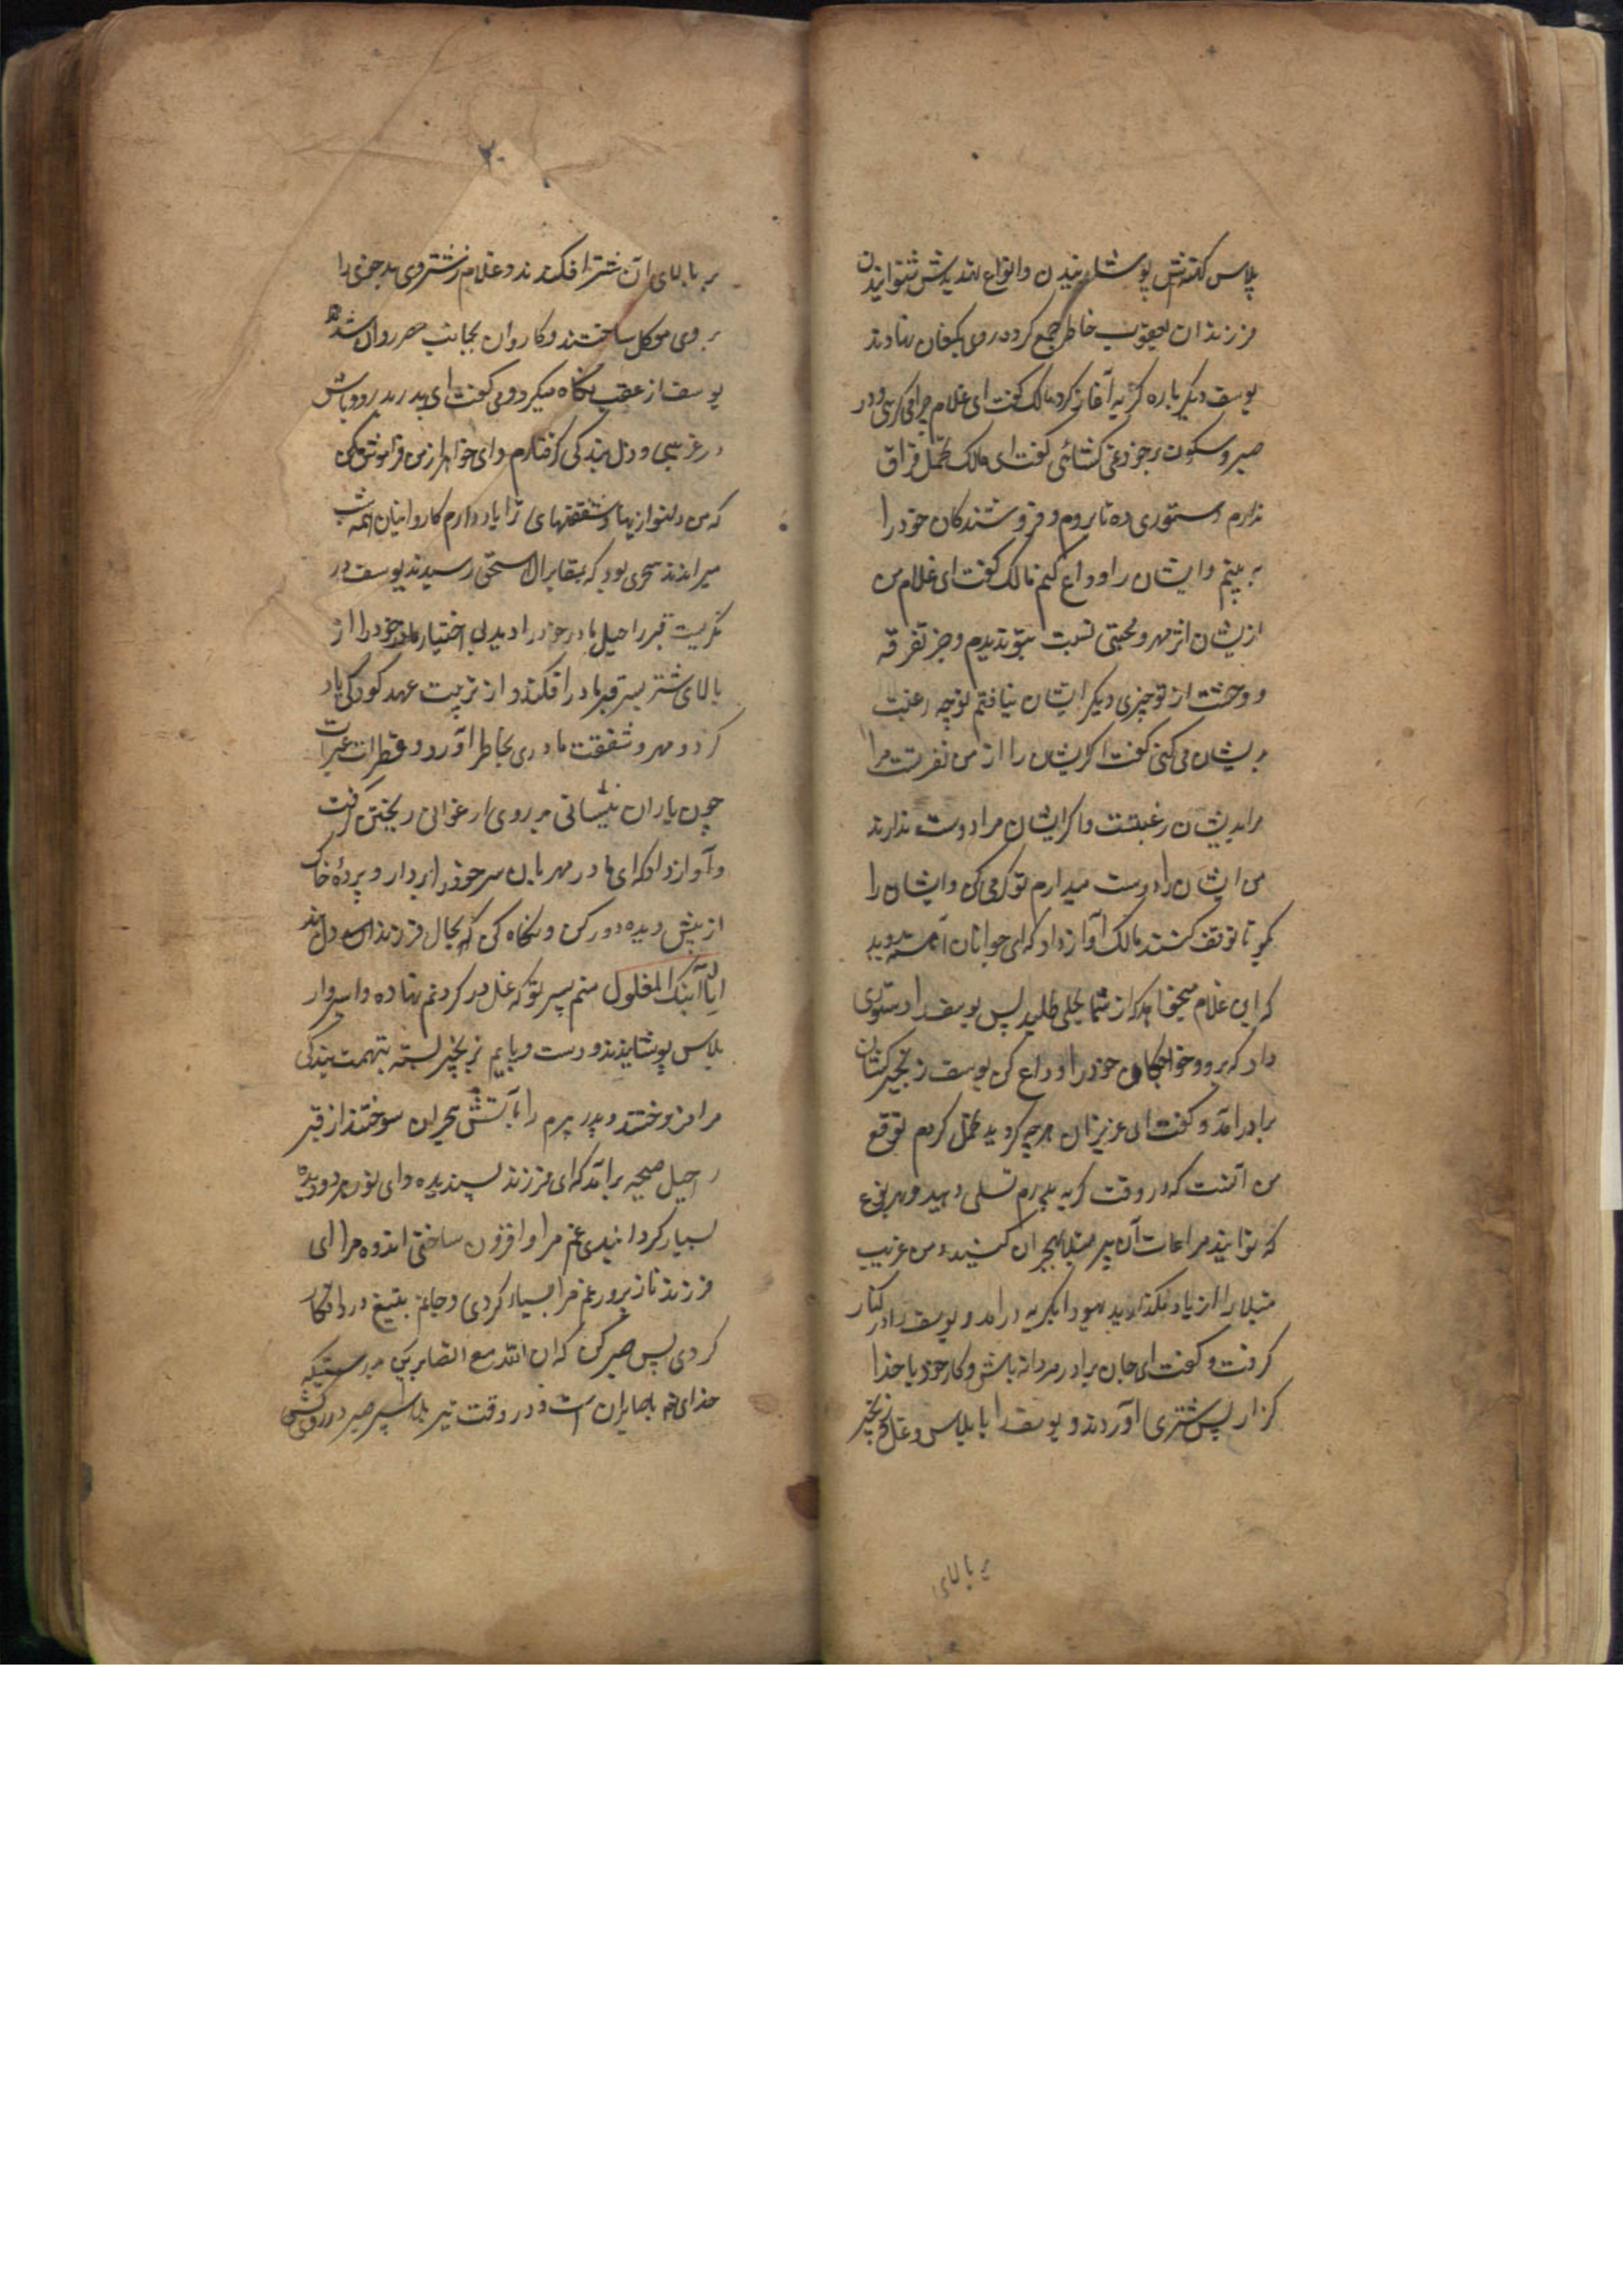 پلاس کهنه‌اش پوشانیدن و انواع تهدیدش شنوانیدن
فرزندان یعقوب خاطر جمع کرده روی بکنعان نهادند
یوسف دیکر باره کریه آغاز کرد مالک کفت ای غلام چرا می کریی و در
صبر و سکون بر خود نمی کشائی کفت ای مالک تحمل فراق
ندارم دستوری ده تا بروم و فروشندکان خود را
به بینم و ایشان را وداع کنم مالک کفت ای غلام من
ازیشان اثر مهر و محبتی نسبت بتو ندیدم و جز تفرقه
و وحشت از تو چیزی دیکر ایشان نیافتم تو چه رغبت
بریشان می کنی کفت اکر ایشان را از من نفرتست مرا
مرا بدیشان رغبتست و اکر ایشان مرا دوست ندارند
من ایشان را دوست میدارم تو کرمی کن و ایشان را
بکو تا توقف کنند مالک آواز داد که ای جوانان آهسته روید
که این غلام میخواهد که از شما بحلی طلبد پس یوسف را دستوری
داد که برو و خواجکان خود را وداع کن یوسف زنجیر کشان
برادر آمد و کفت ای عزیزان هرچه کردید تحمل کردم توقع
من آنست که در وقت کریه پدرم تسلی دهید و بهر نوع
که توانید مراعات آن پیر مبتلا بهجران کنید و من غریب
مبتلا را از یاد مکذارید یهودا بکریه درآمد و یوسف را در کنار
کرفت و کفت ای جان برادر مردانه باش و کار خود با خدا
کزار پس شتری آوردند و یوسف را با پلاس و غل و زنجیر
بر بالای
بر بالای آن شتر افکندند و غلام زشتروی بدخوی را
بر وی موکل ساختند و کاروان بجانب مصر روان شد
یوسف از عقب نکاه میکرد و می کفت ای پدر بدرود باش
در غریبی و ذل بندکی کرفتارم و ای خواهر از من فراموش مکن
که من دلنوازیها و شفقتهای ترا یاد دارم کاروانیان همه شب
میراندند سحری بود که بمقابر آل اسحق رسیدند یوسف در
نکریست قبر راحیل مادر خود را دید بی اختیار خود را از
بالای شتر بسر قبر مادر افکند و از تربیت عهد کودکی یاد
کرد و مهر و شفقت مادری بخاطر آورد و قطرات عبرات
چون باران نیسانی بر روی ارغوانی ریختن کرفت
و آواز داد که ای مادر مهربان سر خود را بردار و پردهٔ خاک
از پیش دیده دور کن و نکاه کن که بحال فرزند
انا ابنک المغلول منم پسر تو که غل در کردنم نهاده و اسیروار
پلاس پوشانیدند و دست و پایم بزنجیر بسته بتهمت بندکی
مرا فروختند و پدر پیرم را بآتش هجران سوختند از قبر
راحیل صیحه برآمد که ای فرزند پسندیده و ای نور هر دو دیده
بسیار کردانیدی غم مرا و افزون ساختی اندوه مرا ای
فرزند نازپرور غم مرا بسیار کردی و جانم بتیغ درد افکار
کردی پس صبر کن که ان الله مع الصابرین بدرستیکه
خدای با صابران است و در وقت تیر بلا سپر صبر در روی کش